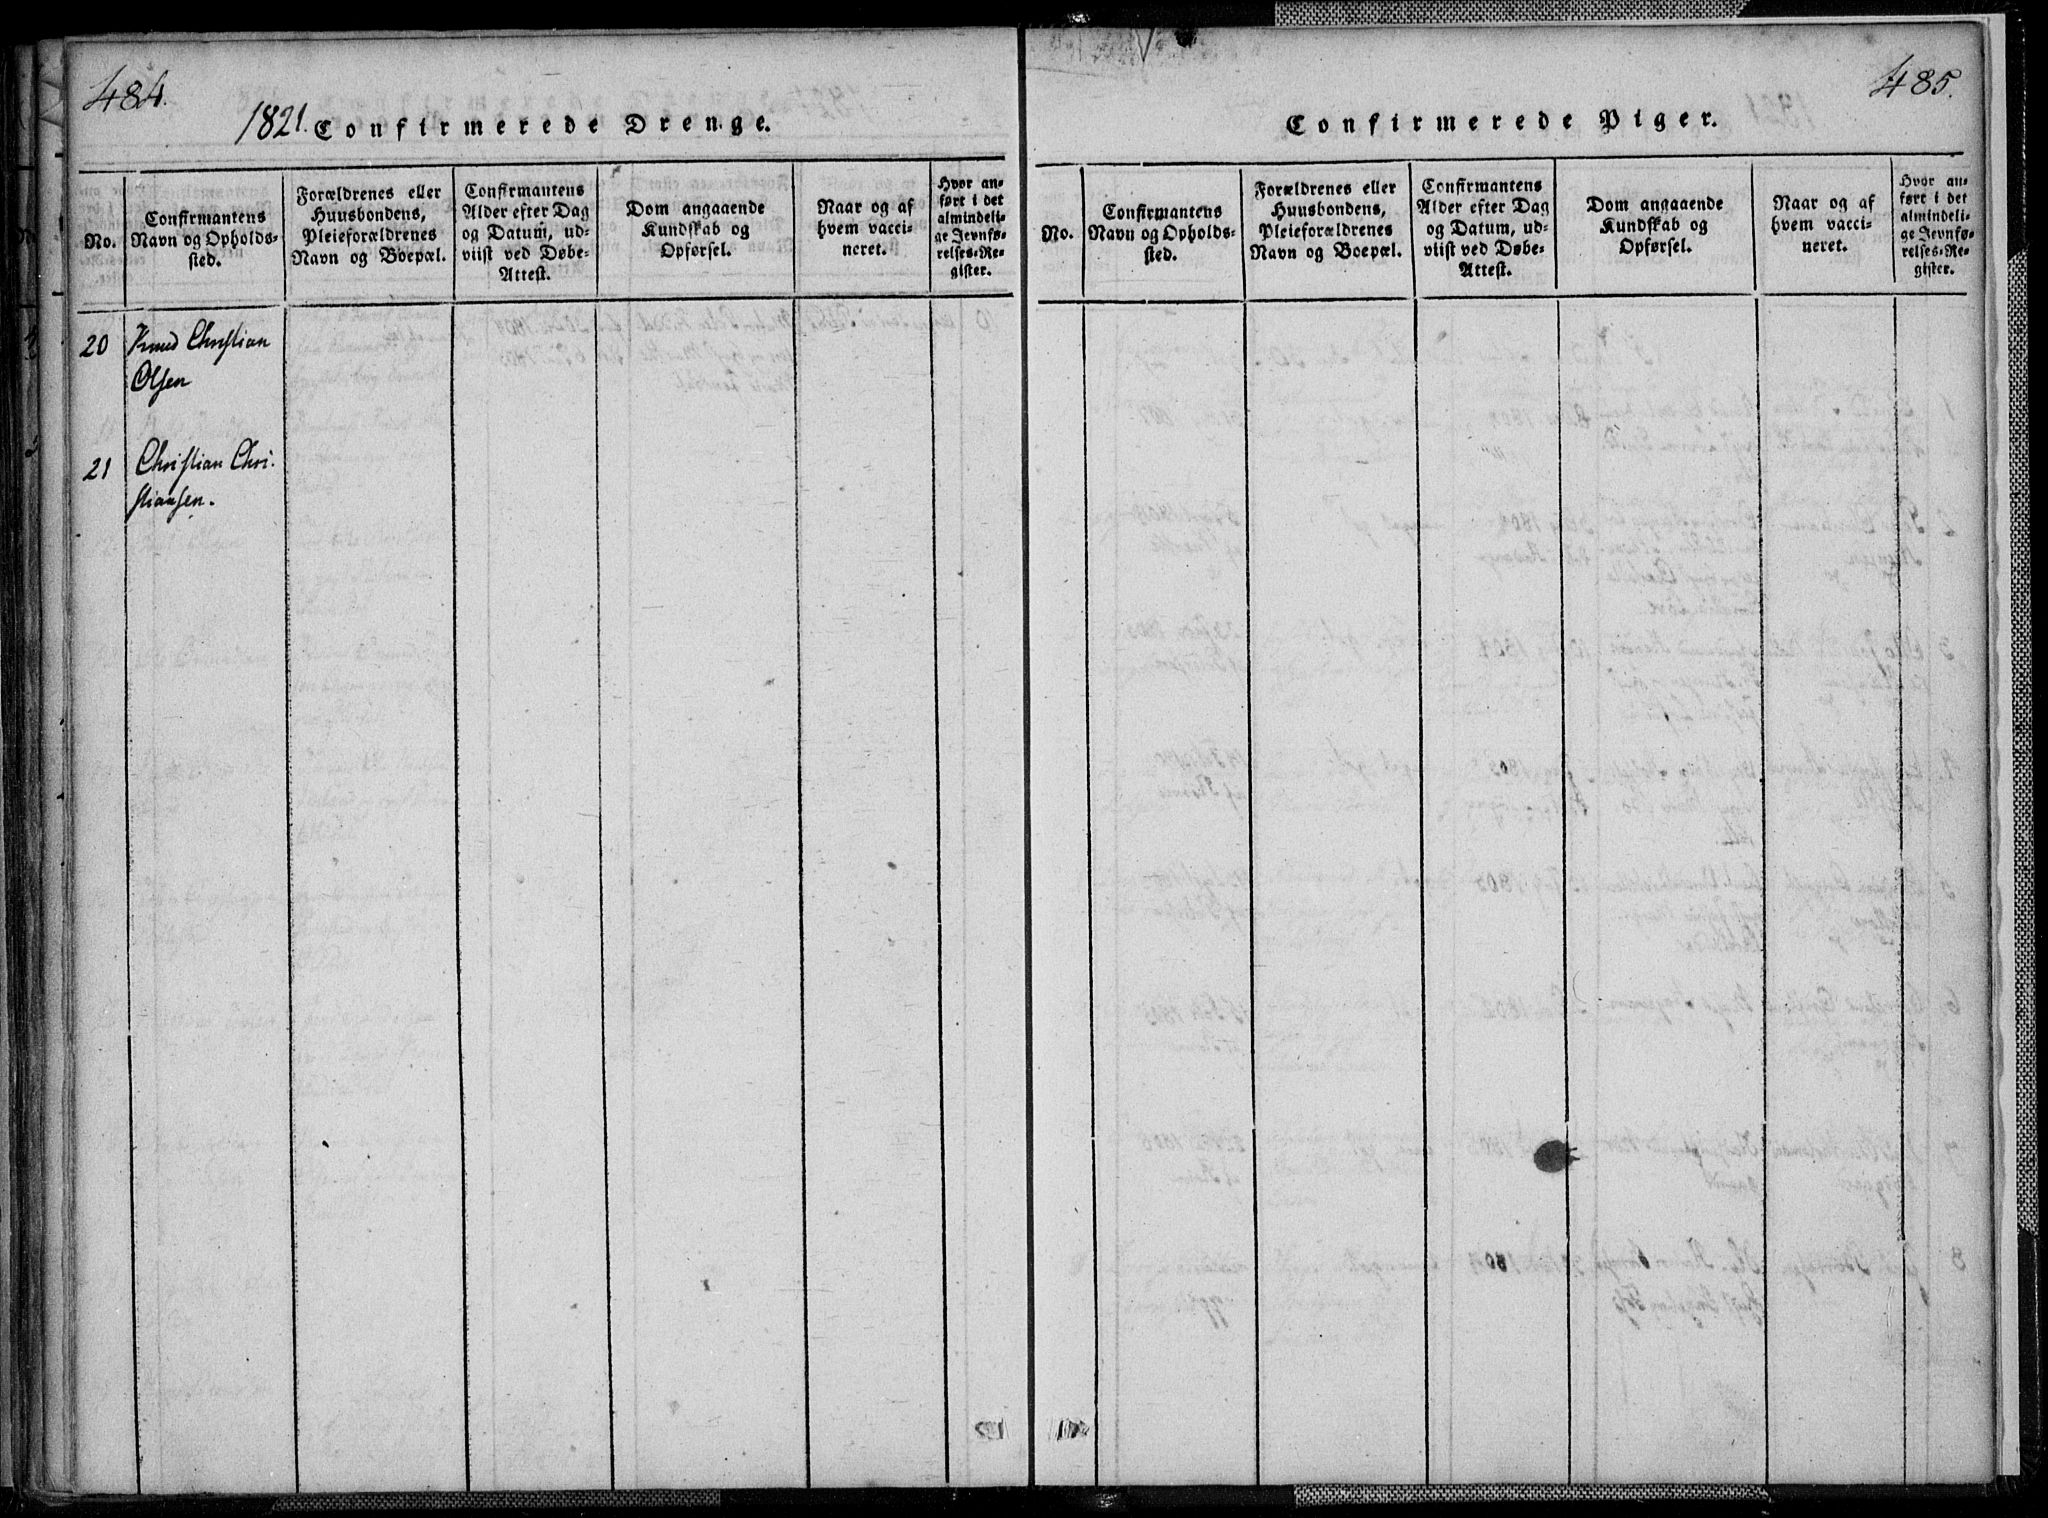 484.
1821. Confirmerede Drenge.
No.
Confirmantens
Navn og Opholds-
sted.
Forældrenes eller
Huusbondens,
Pleieforældrenes
Navn og Boepæl.
Confirmantens
Alder efter Dag
og Datum, ud-
viist ved Døbe-
Attest.
Dom angaaende
Kundskab og
Opførsel.
Naar og af
hvem vacci-
neret.
Hvor an-
ført i det
almindeli-
ge Jevnfø-
relses-Re-
gister.
20 Knud Christian
Olsen
21 Christian Chri-
stiansen.
485.
Confirmerede Piger.
No.
Confirmantens
Navn og Opholds-
sted.
Forældrenes eller
Huusbondens,
Pleieforældrenes
Navn og Boepæl.
Confirmantens
Alder efter Dag
og Datum, ud-
viist ved Døbe-
Attest.
Dom angaaende
Kundskab og
Opførsel.
Naar og af
hvem vacci-
neret.
Hvor an-
ført i det
almindeli-
ge Jevnfø-
relses-Re-
gister.